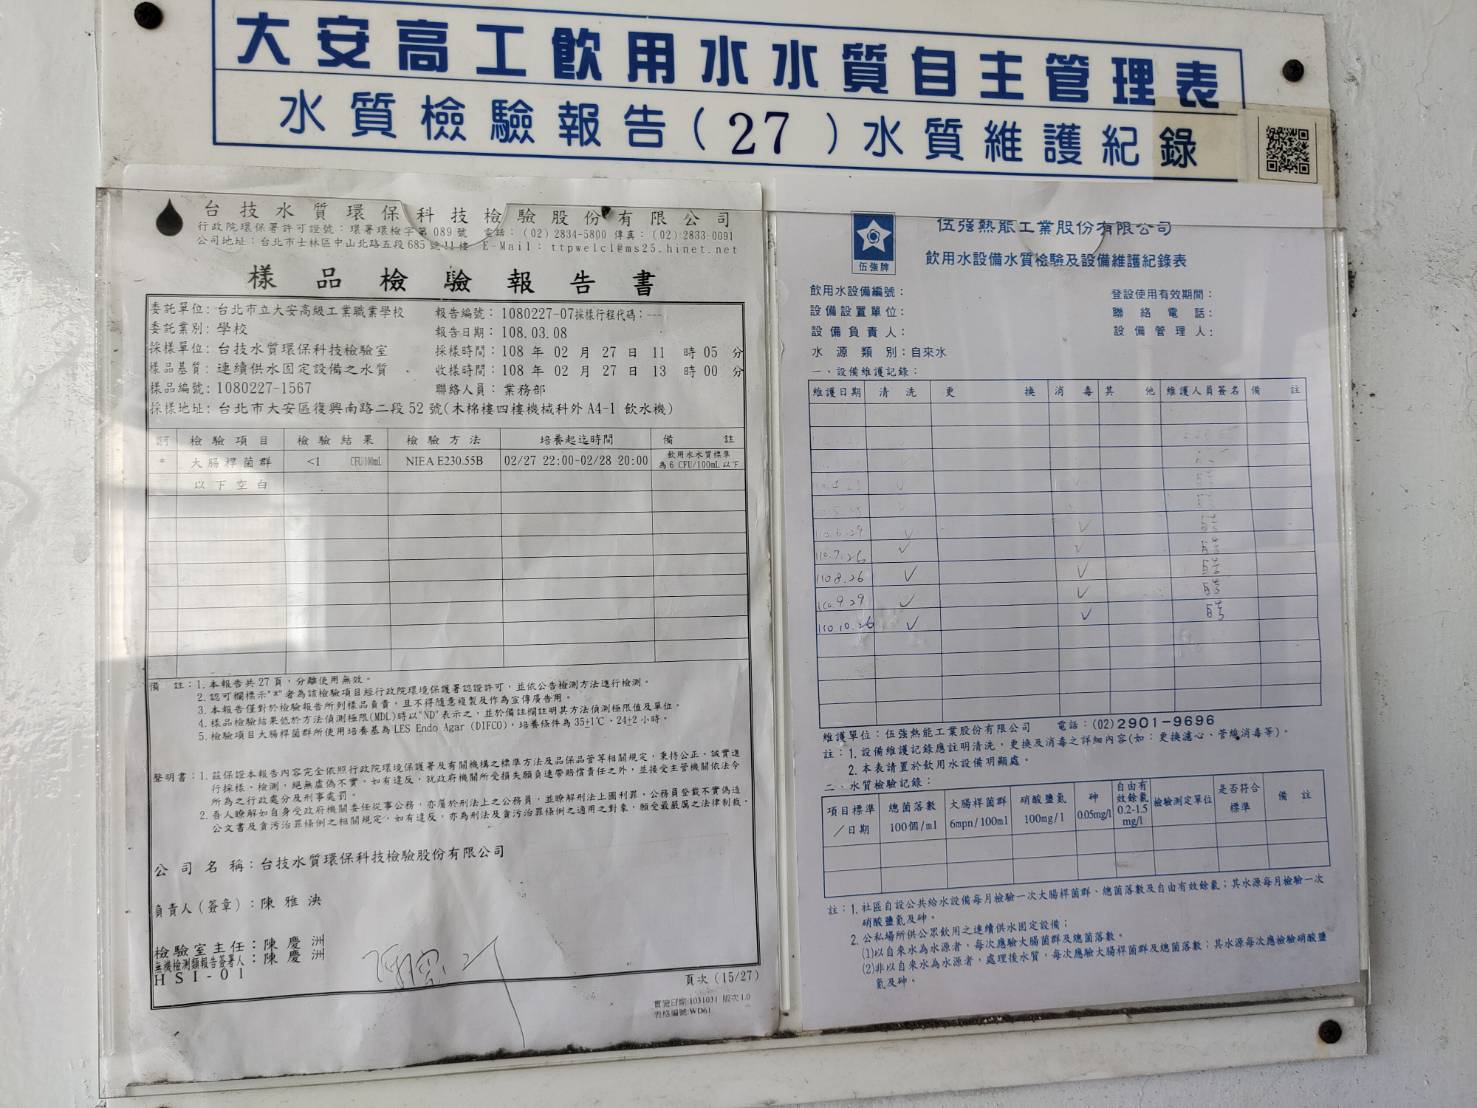 大安高工飲用水水質自主管理表
水質檢驗報告(27)水質維護紀錄
台技水質環保科技檢驗股份有限公司
行政院環保署許可證號：環署環檢字第089號 電話：(02) 2834-5800 傳真：(02) 2833-0091
公司地址：台北市士林區中山北路五段685號11樓 E-Mail：ttpwelcl@ms25.hinet.net
樣品檢驗報告書
委託單位：台北市立大安高級工業職業學校 報告編號：1080227-07採樣行程代碼：---
委託業別：學校 報告日期：108.03.08
採樣單位：台技水質環保科技檢驗室 採樣時間：108 年 02 月 27 日 11 時 05 分
樣品基質：連續供水固定設備之水質 收樣時間：108 年 02 月 27 日 13 時 00 分
樣品編號：1080227-1567 聯絡人員：業務部
採樣地址：台北市大安區復興南路二段52號(木棉樓四樓機械科外A4-1 飲水機)
檢驗項目 檢驗結果 檢驗方法 培養起迄時間 備註
* 大腸桿菌群 <1 CFU/100mL NIEA E230.55B 02/27 22:00-02/28 20:00 飲用水水質標準
為6 CFU/100mL以下
以下空白
備 註：1.本報告共27頁，分離使用無效。
2.認可欄標示"*"者為該檢驗項目經行政院環境保護署認證許可，並依公告檢測方法進行檢測。
3.本報告僅對於檢驗報告所列樣品負責，且不得隨意複製及作為宣傳廣告用。
4.樣品檢驗結果低於方法偵測極限(MDL)時以"ND"表示之，並於備註欄註明其方法偵測極限值及單位。
5.檢驗項目大腸桿菌群所使用培養基為LES Endo Agar (DIFCO)，培養條件為35±1℃、24±2小時。
聲明書：1.茲保證本報告內容完全依照行政院環境保護署及有關機構之標準方法及品保品管等相關規定，秉持公正、誠實進
行採樣、檢測，絕無虛偽不實，如有違反，就政府機關所受損失願負連帶賠償責任之外，並接受主管機關依法令
所為之行政處分及刑事處罰。
2.吾人瞭解如自身受政府機關委任從事公務，亦屬於刑法上之公務員，並瞭解刑法上圖利罪、公務員登載不實偽造
公文書及貪污治罪條例之相關規定，如有違反，亦為刑法及貪污治罪條例之適用之對象，願受最嚴厲之法律制裁。
公司名稱：台技水質環保科技檢驗股份有限公司
負責人(簽章)：陳雅泱
檢驗室主任：陳慶洲
無機檢測類報告簽署人：陳慶洲
HSI-01
頁次 (15/27)
實施日期:1031031 版次1.0
表格編號:WD61
伍強牌
伍強熱能工業股份有限公司
飲用水設備水質檢驗及設備維護紀錄表
飲用水設備編號： 登設使用有效期間：
設備設置單位： 聯絡電話：
設備負責人： 設備管理人：
水源類別：自來水
一、設備維護記錄：
維護日期 清洗 更換 消毒 其他 維護人員簽名 備註
110.7.26 ✓ ✓
110.8.26 ✓ ✓
110.9.29 ✓ ✓
110.10.26 ✓ ✓
維護單位：伍強熱能工業股份有限公司 電話：(02)2901-9696
註：1.設備維護記錄應註明清洗、更換及消毒之詳細內容(如：更換濾心、管線消毒等)。
2.本表請置於飲用水設備明顯處。
二、水質檢驗記錄：
項目標準／日期 總菌落數 100個/ml 大腸桿菌群 6mpn/100ml 硝酸鹽氮 100mg/l 砷 0.05mg/l 自由有效餘氯 0.2-1.5 mg/l 檢驗測定單位 是否符合標準 備註
註：1.社區自設公共給水設備每月檢驗一次大腸桿菌群、總菌落數及自由有效餘氯；其水源每月檢驗一次
硝酸鹽氮及砷。
2.公私場所供公眾飲用之連續供水固定設備；
(1)以自來水為水源者，每次應驗大腸菌群及總菌落數。
(2)非以自來水為水源者，處理後水質，每次應驗大腸桿菌群及總菌落數；其水源每次應檢驗硝酸鹽
氮及砷。